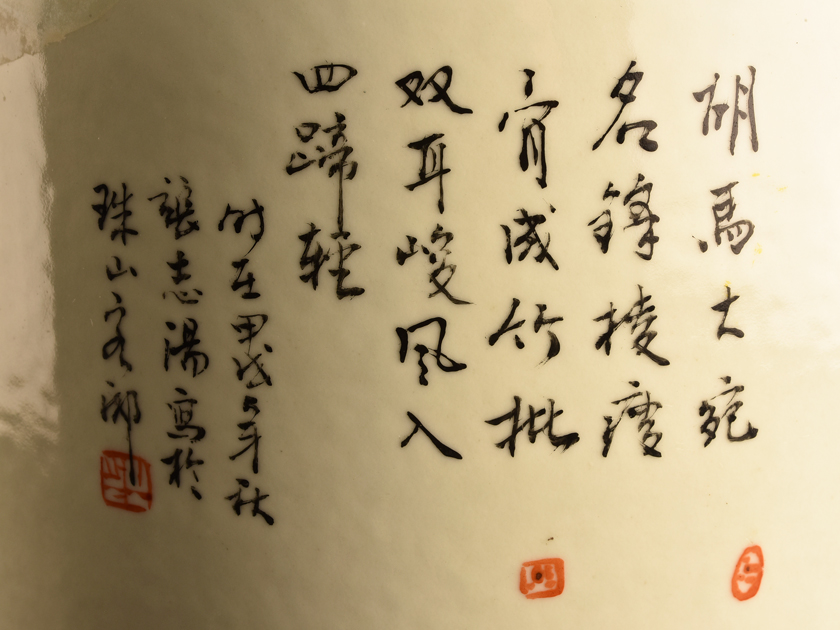 胡馬大宛
名鋒棱瘦
骨成竹批
双耳峻風入
四蹄輕
时在甲戌年秋
張志湯寫於
珠山客邸